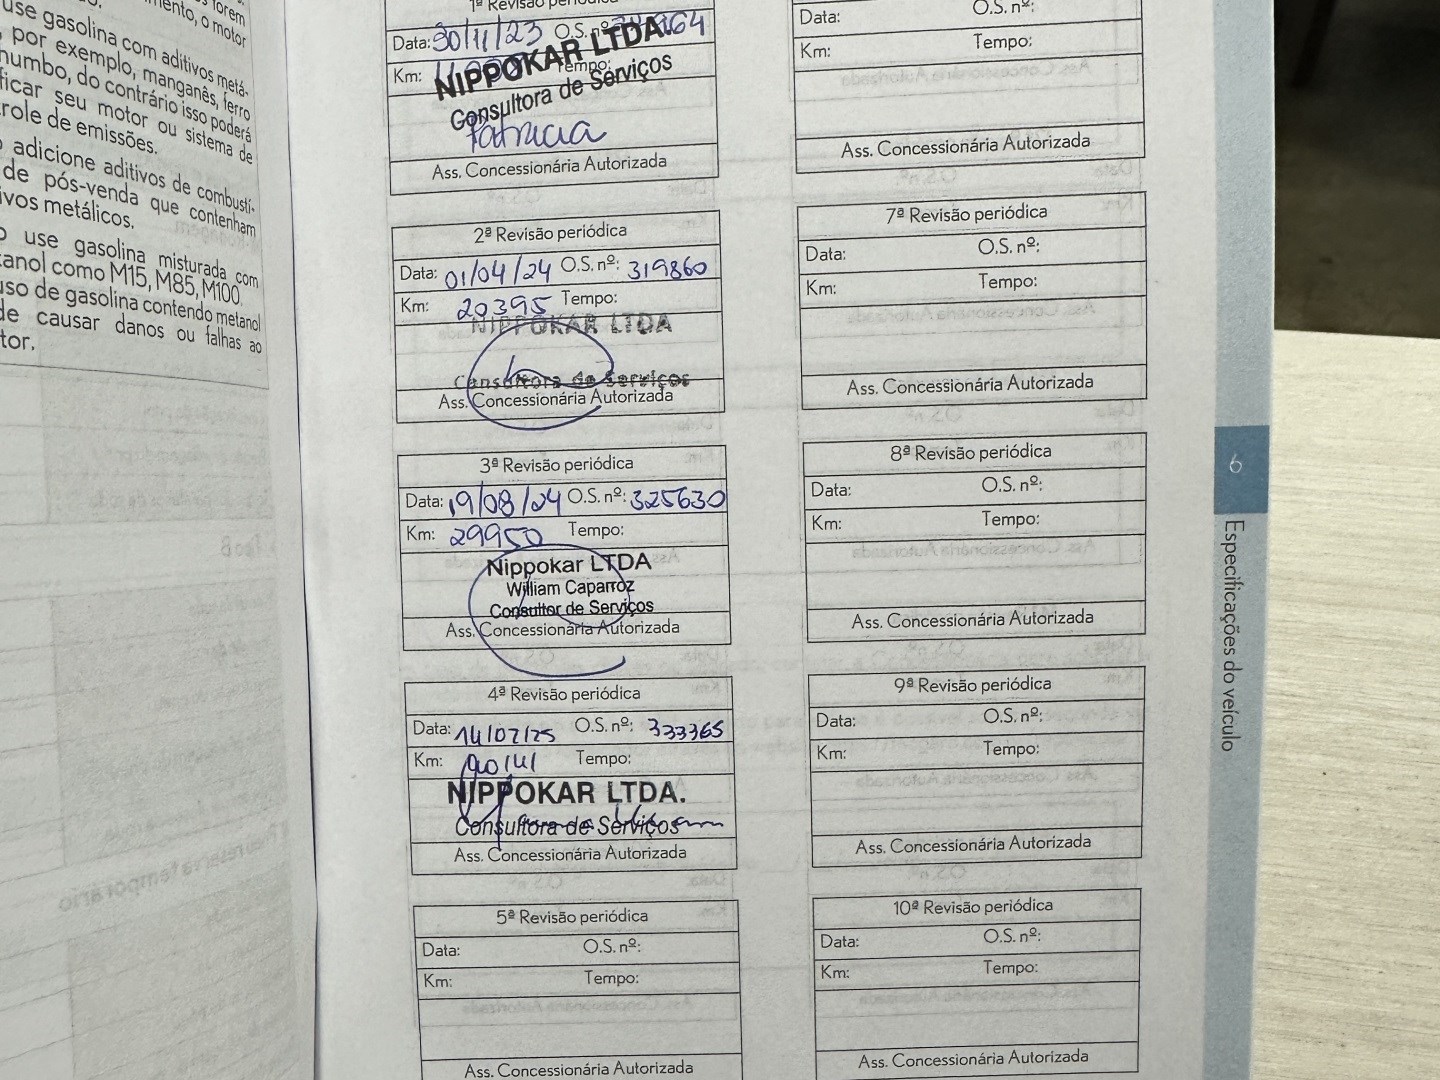 forem
mento, o motor
use gasolina com aditivos metá-
, por exemplo, manganês, ferro
humbo, do contrário isso poderá
ficar seu motor ou sistema de
role de emissões.
adicione aditivos de combustí-
de pós-venda que contenham
ivos metálicos.
o use gasolina misturada com
tanol como M15, M85, M100.
uso de gasolina contendo metanol
de causar danos ou falhas ao
tor.
1ª Revisão periódica
Data: 30/11/23 O.S. nº
Km: Tempo:
NIPPOKAR LTDA.
Consultora de Serviços
Patricia
Ass. Concessionária Autorizada
2ª Revisão periódica
Data: 01/04/24 O.S. nº: 319860
Km: 20395 Tempo:
NIPPOKAR LTDA
Consultora de Serviços
Ass. Concessionária Autorizada
3ª Revisão periódica
Data: 19/08/24 O.S. nº: 325630
Km: 29950 Tempo:
Nippokar LTDA
William Caparroz
Consultor de Serviços
Ass. Concessionária Autorizada
4ª Revisão periódica
Data: 14/02/25 O.S. nº: 333365
Km: Tempo:
NIPPOKAR LTDA.
Consultora de Serviços
Ass. Concessionária Autorizada
5ª Revisão periódica
Data: O.S. nº:
Km: Tempo:
Ass. Concessionária Autorizada
Data: O.S. nº:
Km: Tempo:
Ass. Concessionária Autorizada
7ª Revisão periódica
Data: O.S. nº:
Km: Tempo:
Ass. Concessionária Autorizada
8ª Revisão periódica
Data: O.S. nº:
Km: Tempo:
Ass. Concessionária Autorizada
9ª Revisão periódica
Data: O.S. nº:
Km: Tempo:
Ass. Concessionária Autorizada
10ª Revisão periódica
Data: O.S. nº:
Km: Tempo:
Ass. Concessionária Autorizada
6
Especificações do veículo